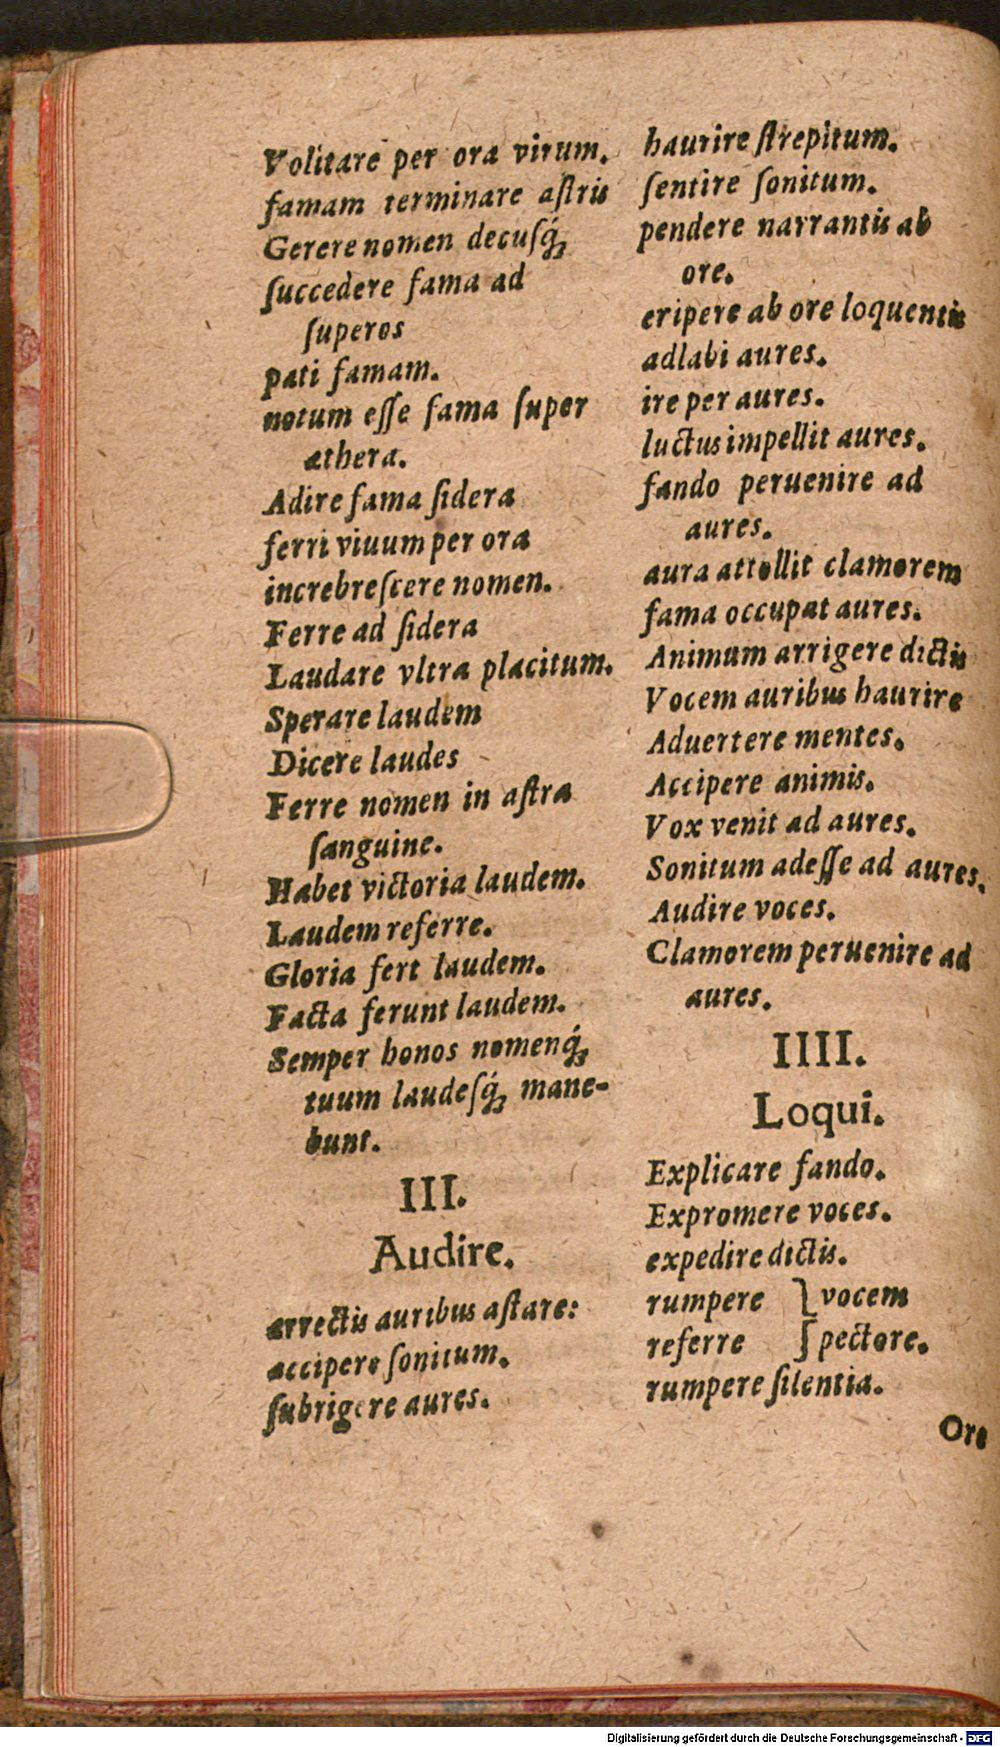 Volitare per ora virum.
famam terminare aſtris
Gerere nomen decuſq́;
ſuccedere fama ad
ſuperos
pati famam.
notum eſſe fama ſuper
athera.
Adire fama ſidera
ferri viuum per ora
increbreſcere nomen.
Ferre ad ſidera
Laudare vltra placitum.
Sperare laudem
Dicere laudes
Ferre nomen in aſtra
ſanguine.
Habet victoria laudem.
Laudem referre.
Gloria fert laudem.
Facta ferunt laudem.
Semper honos nomenq́;
tuum laudeſq́; mane-
bunt.
III.
Audire.
arrectis auribus aſtare:
accipere ſonitum.
ſubrigere aures.
haurire ſtrepitum.
ſentire ſonitum.
pendere narrantis ab
ore.
eripere ab ore loquentis
adlabi aures.
ire per aures.
luctus impellit aures.
fando peruenire ad
aures.
aura attollit clamorem
fama occupat aures.
Animum arrigere dictis
Vocem auribus haurire
Aduertere mentes.
Accipere animis.
Vox venit ad aures.
Sonitum adeſſe ad aures.
Audire voces.
Clamorem peruenire ad
aures.
IIII.
Loqui.
Explicare fando.
Expromere voces.
expedire dictis.
rumpere } vocem
referre } pectore.
rumpere ſilentia.
Ore
Digitalisierung gefördert durch die Deutsche Forschungsgemeinschaft - DFG